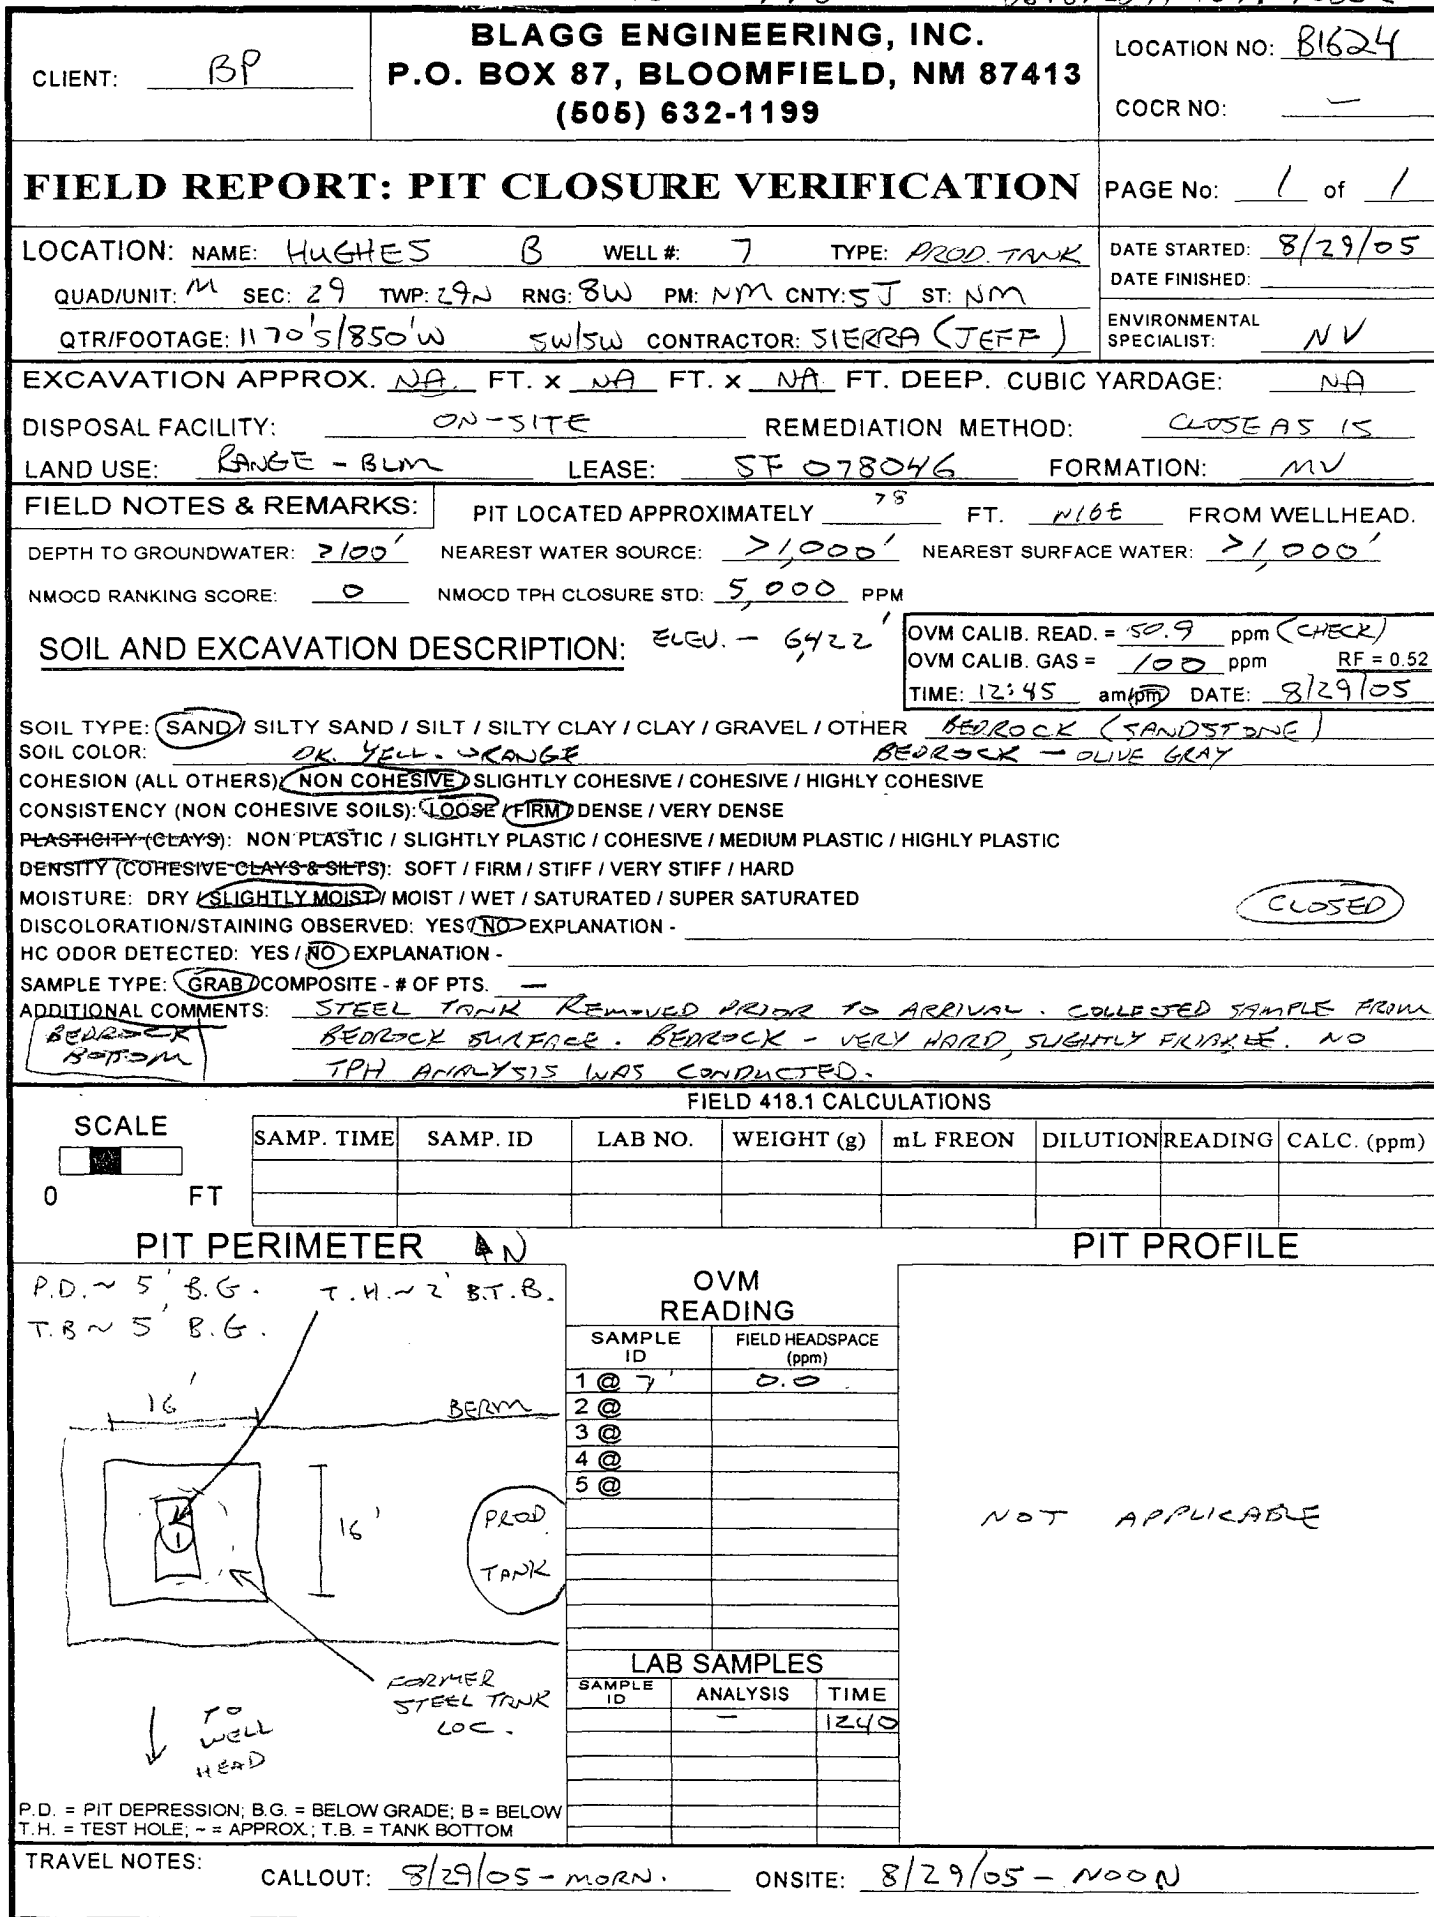 BLAGG ENGINEERING, INC.
P.O. BOX 87, BLOOMFIELD, NM 87413
(505) 632-1199
CLIENT: BP
LOCATION NO: B1624
COCR NO: —
FIELD REPORT: PIT CLOSURE VERIFICATION
PAGE No: 1 of 1
LOCATION: NAME: HUGHES B WELL #: 7 TYPE: PROD. TANK
QUAD/UNIT: M SEC: 29 TWP: 29N RNG: 8W PM: NM CNTY: SJ ST: NM
QTR/FOOTAGE: 1170'S/850'W SW/SW CONTRACTOR: SIERRA (JEFF)
DATE STARTED: 8/29/05
DATE FINISHED:
ENVIRONMENTAL SPECIALIST: NV
EXCAVATION APPROX. NA FT. x NA FT. x NA FT. DEEP. CUBIC YARDAGE: NA
DISPOSAL FACILITY: ON-SITE REMEDIATION METHOD: CLOSE AS IS
LAND USE: RANGE - BLM LEASE: SF 078046 FORMATION: MV
FIELD NOTES & REMARKS: PIT LOCATED APPROXIMATELY 78 FT. N16E FROM WELLHEAD.
DEPTH TO GROUNDWATER: >100' NEAREST WATER SOURCE: >1,000' NEAREST SURFACE WATER: >1,000'
NMOCD RANKING SCORE: 0 NMOCD TPH CLOSURE STD: 5,000 PPM
SOIL AND EXCAVATION DESCRIPTION: ELEV. - 6,422'
OVM CALIB. READ. = 50.9 ppm (CHECK)
OVM CALIB. GAS = 100 ppm RF = 0.52
TIME: 12:45 am/pm DATE: 8/29/05
SOIL TYPE: SAND / SILTY SAND / SILT / SILTY CLAY / CLAY / GRAVEL / OTHER BEDROCK (SANDSTONE)
SOIL COLOR: DK. YELL. ORANGE BEDROCK - OLIVE GRAY
COHESION (ALL OTHERS): NON COHESIVE / SLIGHTLY COHESIVE / COHESIVE / HIGHLY COHESIVE
CONSISTENCY (NON COHESIVE SOILS): LOOSE / FIRM / DENSE / VERY DENSE
PLASTICITY (CLAYS): NON PLASTIC / SLIGHTLY PLASTIC / COHESIVE / MEDIUM PLASTIC / HIGHLY PLASTIC
DENSITY (COHESIVE CLAYS & SILTS): SOFT / FIRM / STIFF / VERY STIFF / HARD
MOISTURE: DRY / SLIGHTLY MOIST / MOIST / WET / SATURATED / SUPER SATURATED
CLOSED
DISCOLORATION/STAINING OBSERVED: YES / NO EXPLANATION -
HC ODOR DETECTED: YES / NO EXPLANATION -
SAMPLE TYPE: GRAB / COMPOSITE - # OF PTS. —
ADDITIONAL COMMENTS: STEEL TANK REMOVED PRIOR TO ARRIVAL. COLLECTED SAMPLE FROM
BEDROCK SURFACE. BEDROCK - VERY HARD, SLIGHTLY FRIABLE. NO
TPH ANALYSIS WAS CONDUCTED.
BEDROCK
BOTTOM
SCALE
0 FT
FIELD 418.1 CALCULATIONS
SAMP. TIME SAMP. ID LAB NO. WEIGHT (g) mL FREON DILUTION READING CALC. (ppm)
PIT PERIMETER N
P.D. ~ 5' B.G. T.H. ~ 2' B.T.B.
T.B ~ 5' B.G.
16'
BERM
16'
PROD.
TANK
FORMER
STEEL TANK
LOC.
TO
WELL
HEAD
P.D. = PIT DEPRESSION; B.G. = BELOW GRADE; B = BELOW
T.H. = TEST HOLE; ~ = APPROX.; T.B. = TANK BOTTOM
OVM
READING
SAMPLE ID FIELD HEADSPACE (ppm)
1 @ 7' 0.0
2 @
3 @
4 @
5 @
LAB SAMPLES
SAMPLE ID ANALYSIS TIME
— 1240
PIT PROFILE
NOT APPLICABLE
TRAVEL NOTES: CALLOUT: 8/29/05 - MORN. ONSITE: 8/29/05 - NOON